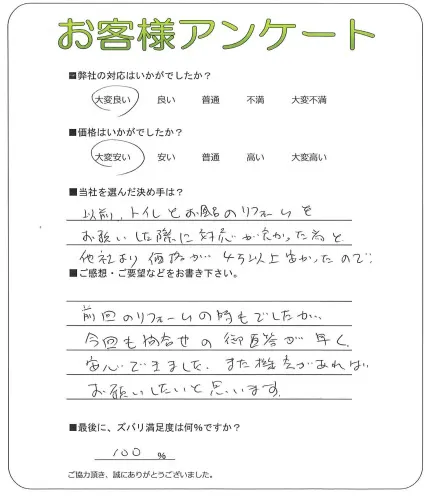 お客様アンケート
■弊社の対応はいかがでしたか?
大変良い 良い 普通 不満 大変不満
■価格はいかがでしたか?
大変安い 安い 普通 高い 大変高い
■当社を選んだ決め手は?
以前、トイレとお風呂のリフォームを
お願いした際に対応が良かった為と
他社より価格が4万以上安かったので。
■ご感想・ご要望などをお書き下さい。
前回のリフォームの時もでしたが、
今回も問合せの御返答が早く、
安心できました。また機会があれば、
お願いしたいと思います。
■最後に、ズバリ満足度は何%ですか?
100 %
ご協力頂き、誠にありがとうございました。